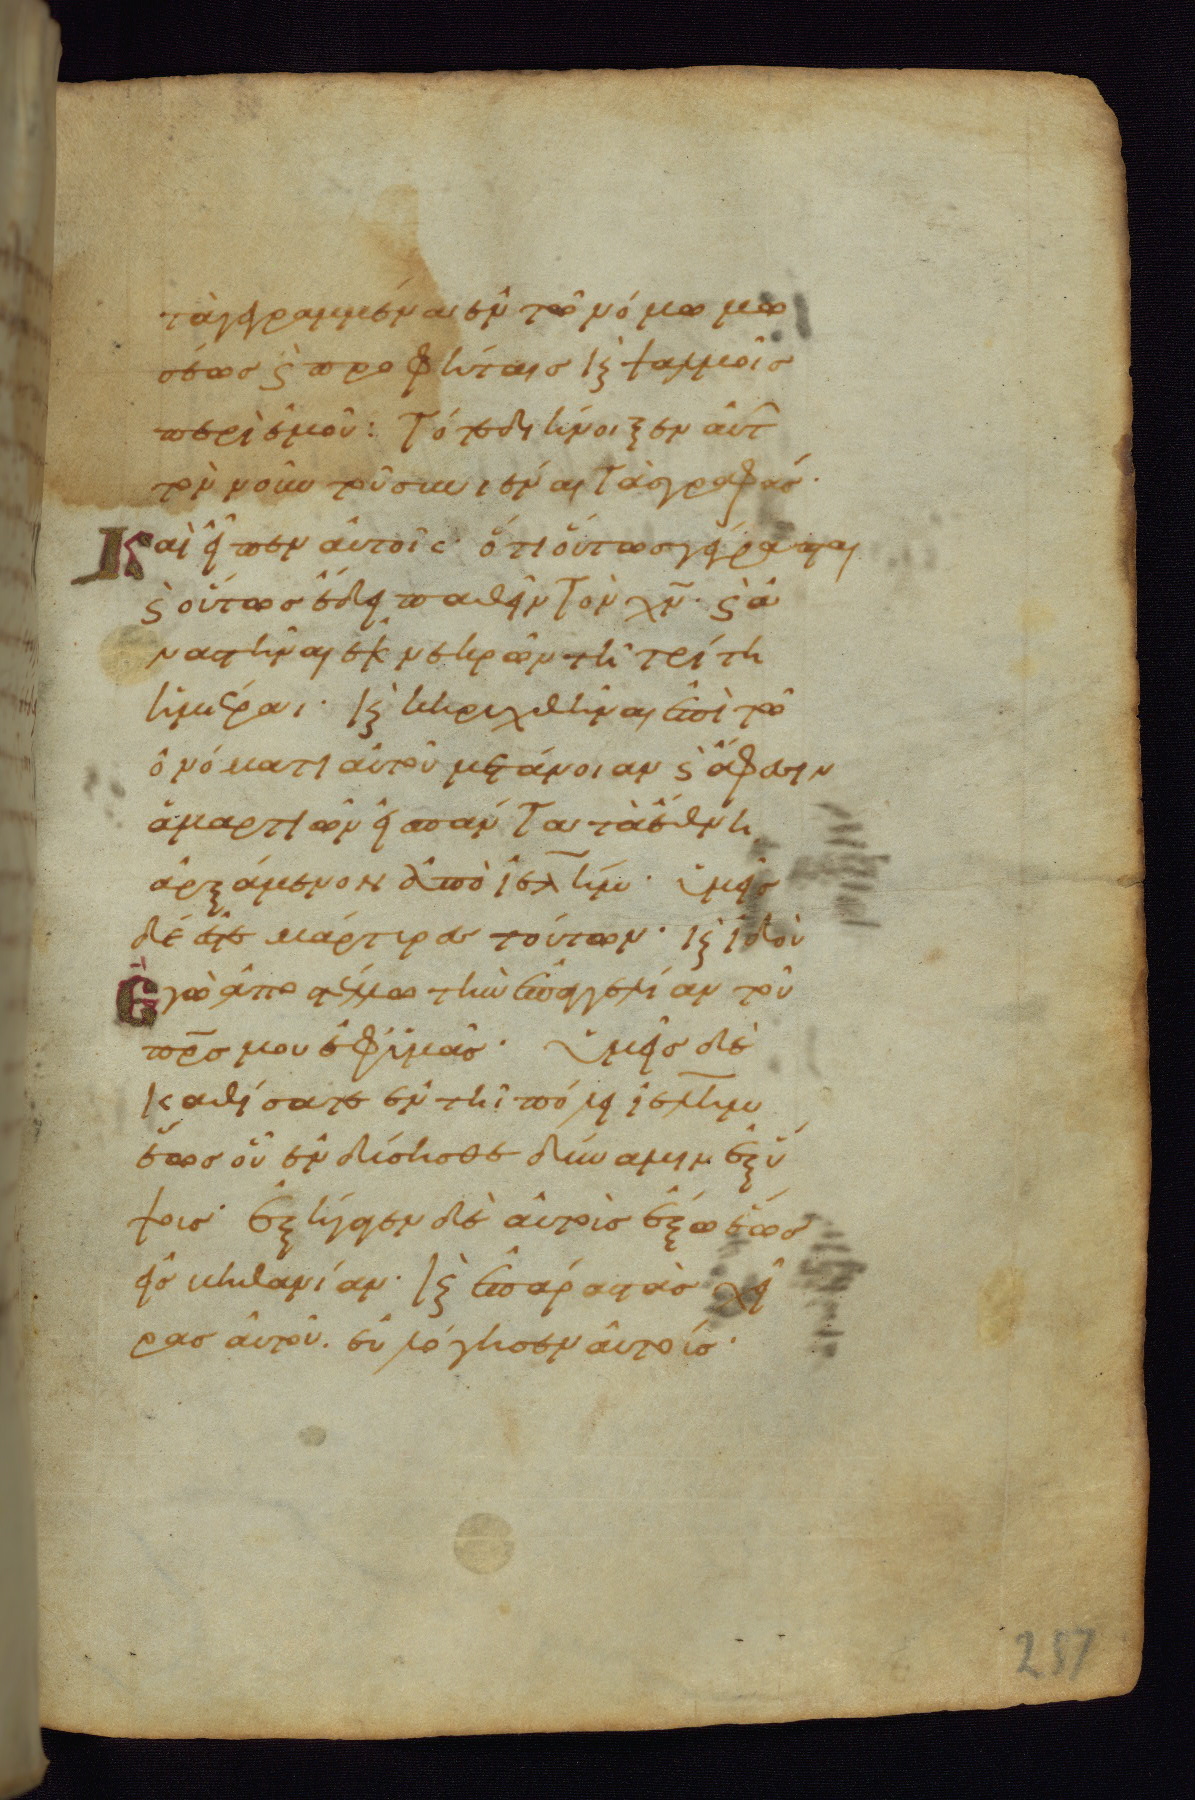 τὰ γεγραμμένα ἐν τῶ νόμω μω
σέως ϛ̀ προφήταις κ̣ ψαλμοῖς
περὶ ἐμοῦ: Τότε διήνοιξεν αὐτ̑
τὸν νοῦν τοῦ συνιέναι Τὰς γραφάς·
Καὶ εἶπεν αὐτοῖς· ὅτι οὕτως γέγραπται
ϛ̀ οὕτως ἔδει παθεῖν Τὸν χ̅ν̅· ϛ̀ ἀ
ναστῆναι ἐκ νεκρῶν τῆ τρίτη
ἡμέραι· κ̣ κηρυχθῆναι ἐπὶ τῶ
ὀνόματι αὐτοῦ μετάνοιαν ϛ̀ ἄφεσιν
ἁμαρτιῶν εἰς πάντα τὰ ἔθνη
ἀρξάμενον ἀπὸ ἱε̅λ̅ήμ· ὑμεῖς
δέ ἐστε μάρτυρες τούτων· κ̣ ἰδοὺ
Ἐγὼ ἀποστέλλω τὴν ἐπαγγελίαν τοῦ
π̅ρ̅ς μου ἐφ' ὑμᾶς· ὑμεῖς δὲ
καθίσατε ἐν τῆ πόλει ἱε̅λ̅ήμ
ἕως οὗ ἐνδύσησθε δύναμιν ἐξ ὕ
ψους· ἐξήγαγεν δὲ αὐτοὺς ἔξω ἕως
εἰς βηθανίαν· κ̣ ἐπάρας τὰς χεῖ
ρας αὐτοῦ. εὐλόγησεν αὐτούς·
257